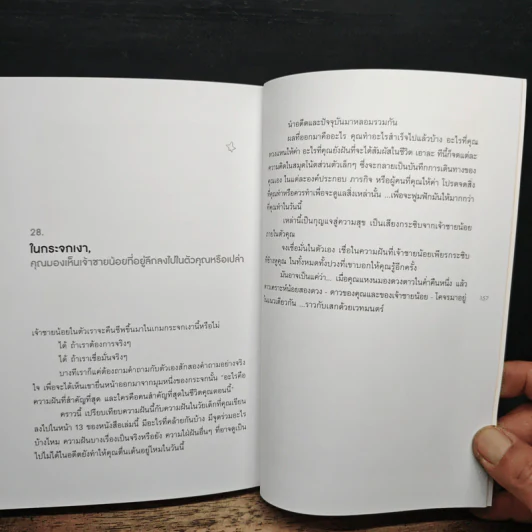 28.
ในกระจกเงา,
คุณมองเห็นเจ้าชายน้อยที่อยู่ลึกลงไปในตัวคุณหรือเปล่า
เจ้าชายน้อยในตัวเราจะคืนชีพขึ้นมาในเกมกระจกเงานี้หรือไม่
ได้ ถ้าเราต้องการจริงๆ
ได้ ถ้าเราเชื่อมั่นจริงๆ
บางทีเราก็แค่ต้องถามคำถามกับตัวเองสักสองคำถามอย่างจริง
ใจ เพื่อจะได้เห็นเขายื่นหน้าออกมาจากมุมหนึ่งของกระจกนั้น "อะไรคือ
ความฝันที่สำคัญที่สุด และใครคือคนสำคัญที่สุดในชีวิตคุณตอนนี้"
คราวนี้ เปรียบเทียบความฝันนี้กับความฝันในวัยเด็กที่คุณเขียน
ลงไปในหน้า 13 ของหนังสือเล่มนี้ มีอะไรที่คล้ายกันบ้าง มีจุดร่วมอะไร
บ้างไหม ความฝันบางเรื่องเป็นจริงหรือยัง ความใฝ่ฝันอื่นๆ ที่อาจดูเป็น
ไปไม่ได้ในอดีตยังทำให้คุณตื่นเต้นอยู่ไหมในวันนี้
นำอดีตและปัจจุบันมาหลอมรวมกัน
ผลที่ออกมาคืออะไร คุณทำอะไรสำเร็จไปแล้วบ้าง อะไรที่คุณ
หวงแหนให้ค่า อะไรที่คุณยังฝันที่จะได้สัมผัสในชีวิต เอาละ ทีนี้ก็จดแต่ละ
ความคิดในสมุดโน้ตส่วนตัวเล็กๆ ซึ่งจะกลายเป็นบันทึกการเดินทางของ
คุณเอง ในแต่ละองค์ประกอบ ภารกิจ หรือผู้คนที่คุณให้ค่า โปรดจดสิ่ง
ที่คุณทำหรือควรทำเพื่อจะดูแลสิ่งเหล่านั้น ...เพื่อจะพูมฟักมันให้มากกว่า
ที่คุณทำในวันนี้
เหล่านี้เป็นกุญแจสู่ความสุข เป็นเสียงกระซิบจากเจ้าชายน้อย
ภายในตัวคุณ
จงเชื่อมั่นในตัวเอง เชื่อในความฝันที่เจ้าชายน้อยเพียรกระซิบ
ที่ข้างหูคุณ ในทั้งหมดทั้งปวงที่เขาบอกให้คุณรู้อีกครั้ง
มันอาจเป็นแค่ว่า... เมื่อคุณแหงนมองดวงดาวในค่ำคืนหนึ่ง แล้ว
ดาวเคราะห์น้อยสองดวง - ดาวของคุณและของเจ้าชายน้อย - โคจรมาอยู่
ในแนวเดียวกัน ...ราวกับเสกด้วยเวทมนตร์
157